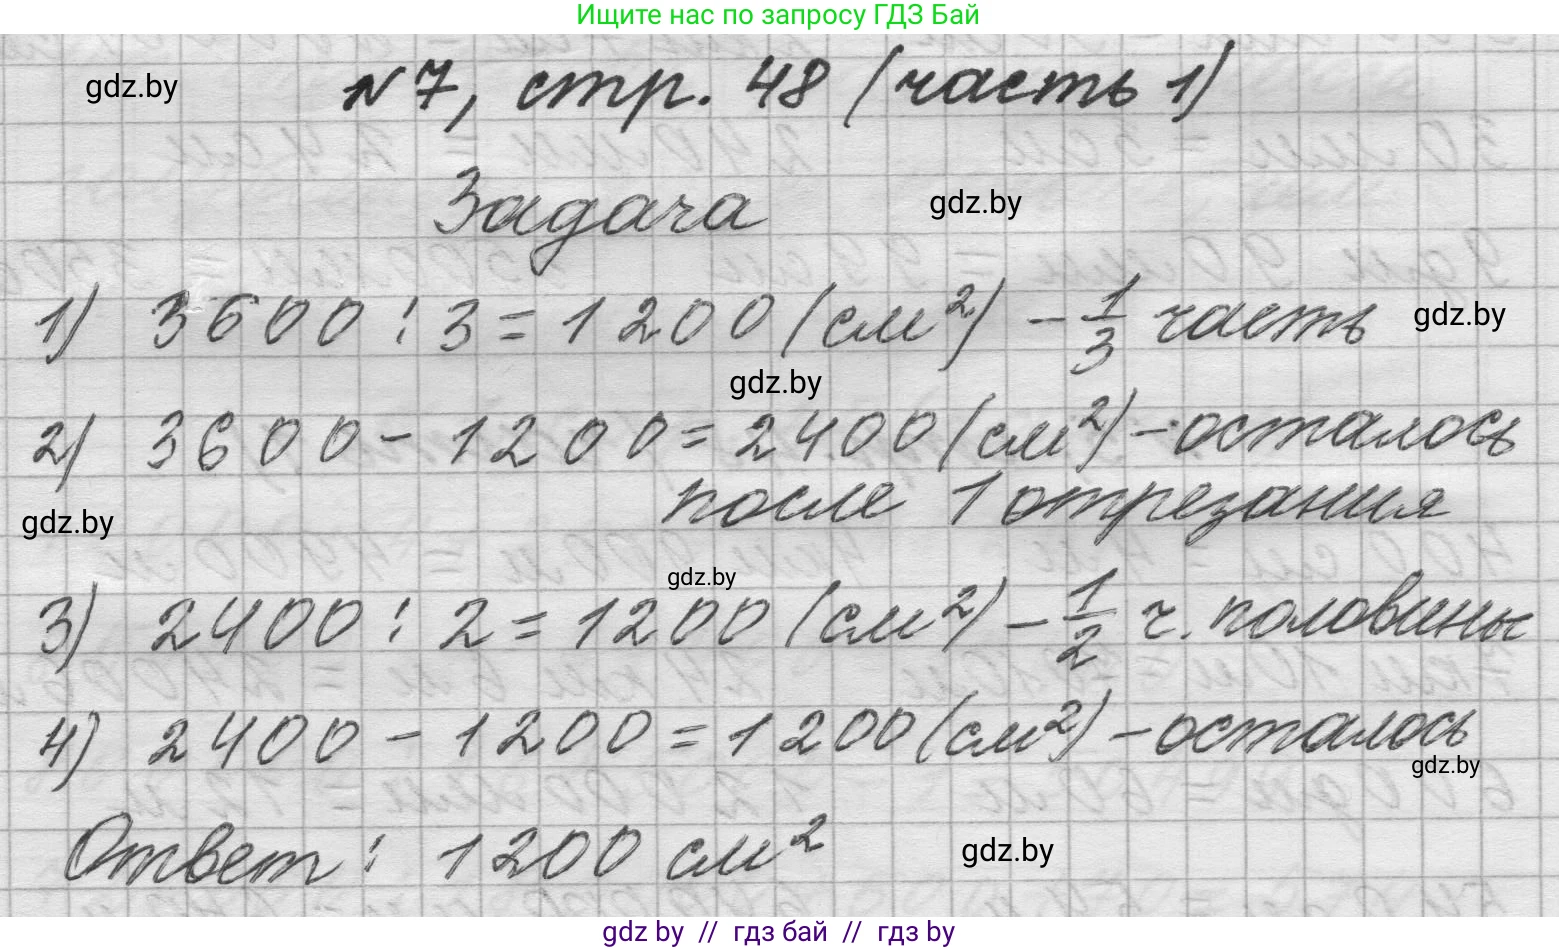 Ищите нас по запросу ГДЗ Бай
gdz.by
№ 7, стр. 48 (часть 1)
Задача
gdz.by
1) 3600 : 3 = 1200 (см²) - 1/3 часть
gdz.by
gdz.by
2) 3600 - 1200 = 2400 (см²) - осталось
после 1 отрезания
gdz.by
gdz.by
3) 2400 : 2 = 1200 (см²) - 1/2 ч. половины
4) 2400 - 1200 = 1200 (см²) - осталось
gdz.by
Ответ: 1200 см²
gdz.by
gdz by // гдз бай // гдз by